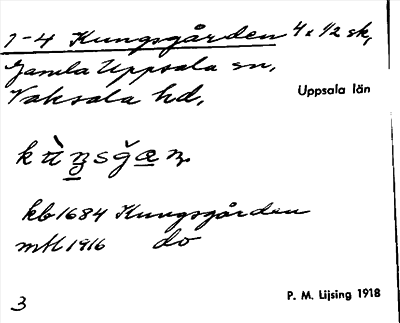 1-4 Kungsgården 4 1/2 sk,
Gamla Uppsala sn,
Vaksala hd,
Uppsala län
kb 1684 Kungsgården
mtl 1916 do
P. M. Lijsing 1918
3